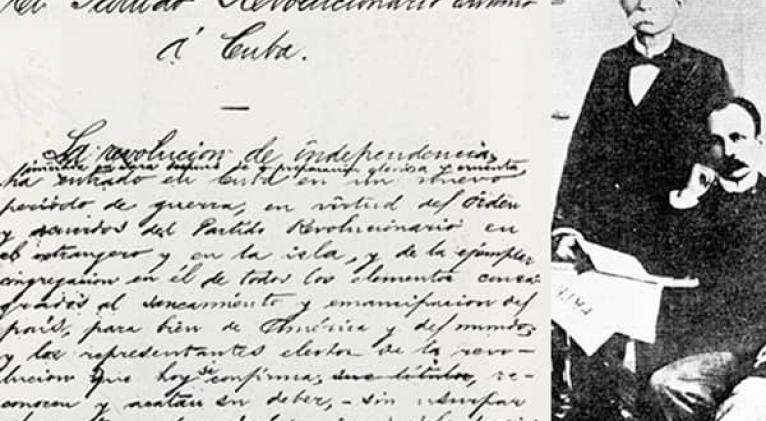 El Partido Revolucionario Cubano
á Cuba.
La revolucion de independencia,
iniciada en Yara despues de preparacion gloriosa y cruenta,
ha entrado en Cuba en un nuevo
período de guerra, en virtud del órden
y acuerdos del Partido Revolucionario en
el extrangero y en la isla, y de la ejemplar
congregacion en él de todos los elementos consa-
grados al saneamiento y emancipacion del
país, para bien de América y del mundo;
y los representantes electos de la revo-
lucion que hoy se confirma, sus títulos, re-
conocen y acatan su deber, – sin usurpar